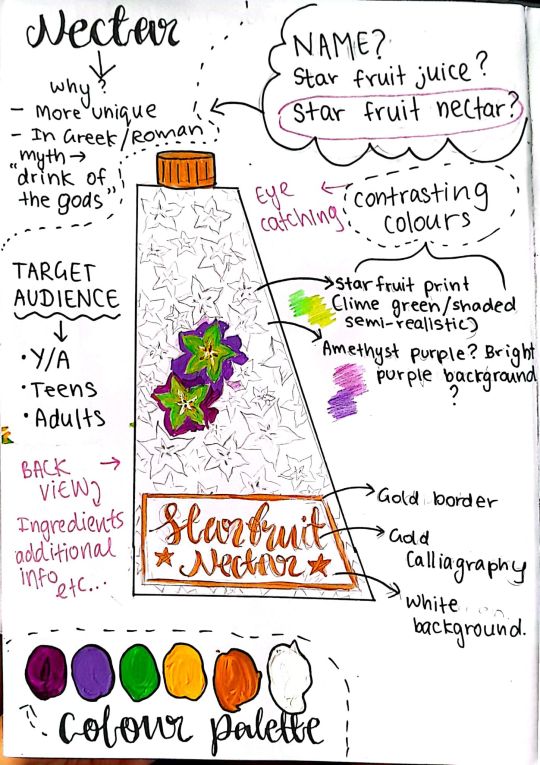 Nectar
why?
- More unique
- In Greek/Roman
"myth →
drink of
the gods"
NAME?
Star fruit juice?
Star fruit nectar?
Eye
catching
contrasting
colours
TARGET
AUDIENCE
• Y/A
• Teens
• Adults
Starfruit print
(lime green/shaded
semi-realistic)
Amethyst purple? Bright
purple background
?
BACK
VIEW
Ingredients
additional
info
etc...
Gold border
Gold
Calliagraphy
White
background.
Starfruit
Nectar
Colour palette